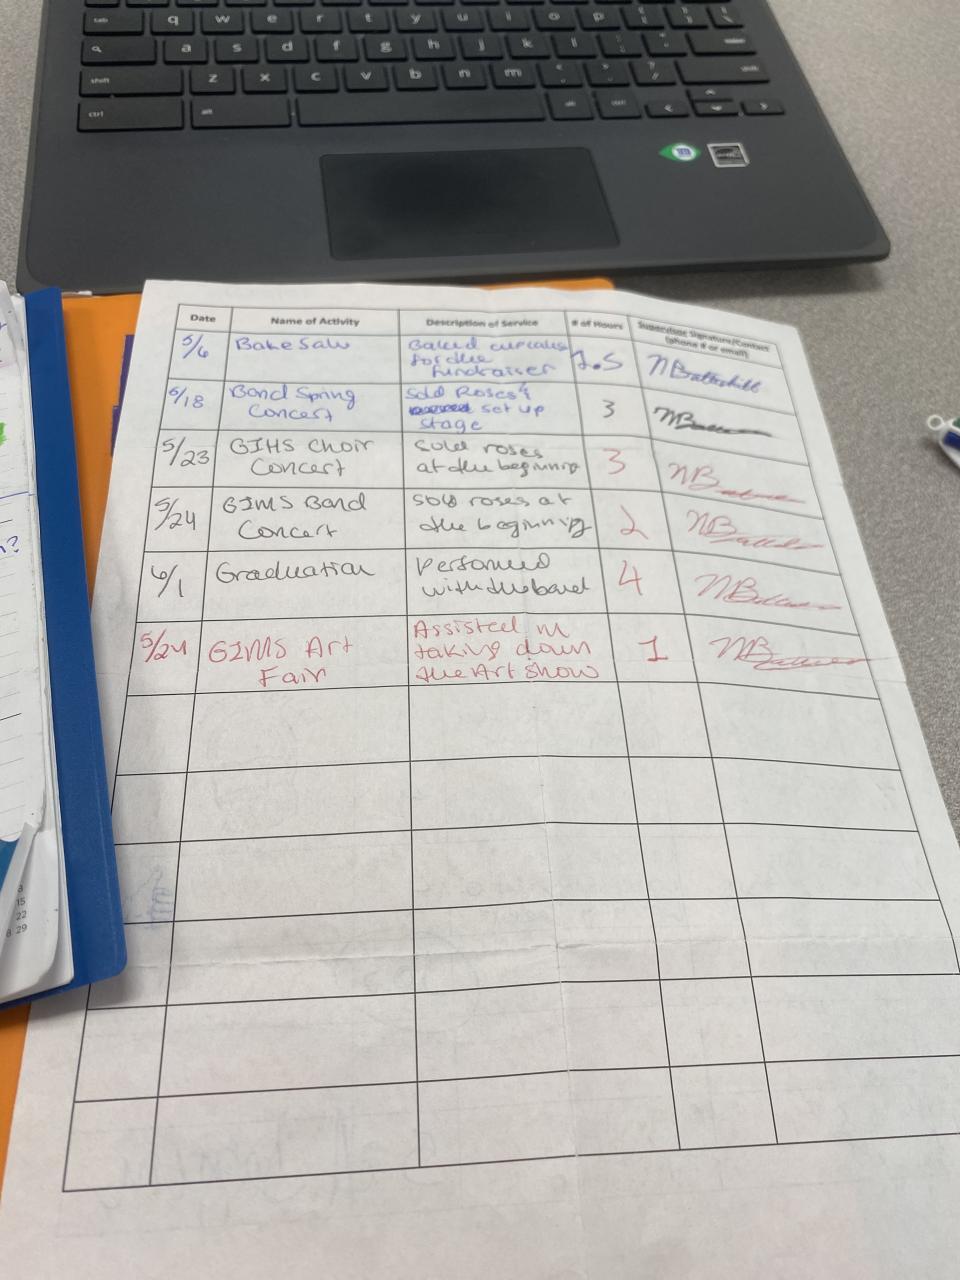 tab q w e r t y u i o p
a s d f g h j k l
shift z x c v b n m shift
ctrl alt alt ctrl
Date Name of Activity Description of Service # of Hours Supervisor Signature/Contact
(phone # or email)
5/6 Bake Sale Baked cupcakes
for the
fundraiser
5/18 Band Spring Sold Roses &
Concert set up 3
stage
5/23 GIHS Choir Sold roses
Concert at the beginning 3
5/24 GIMS Band Sold roses at
Concert the beginning 2
6/1 Graduation Performed
with the band 4
5/24 GIMS Art Assisted in
Fair taking down 1
the Art Show
n?
8
15
22
8 29